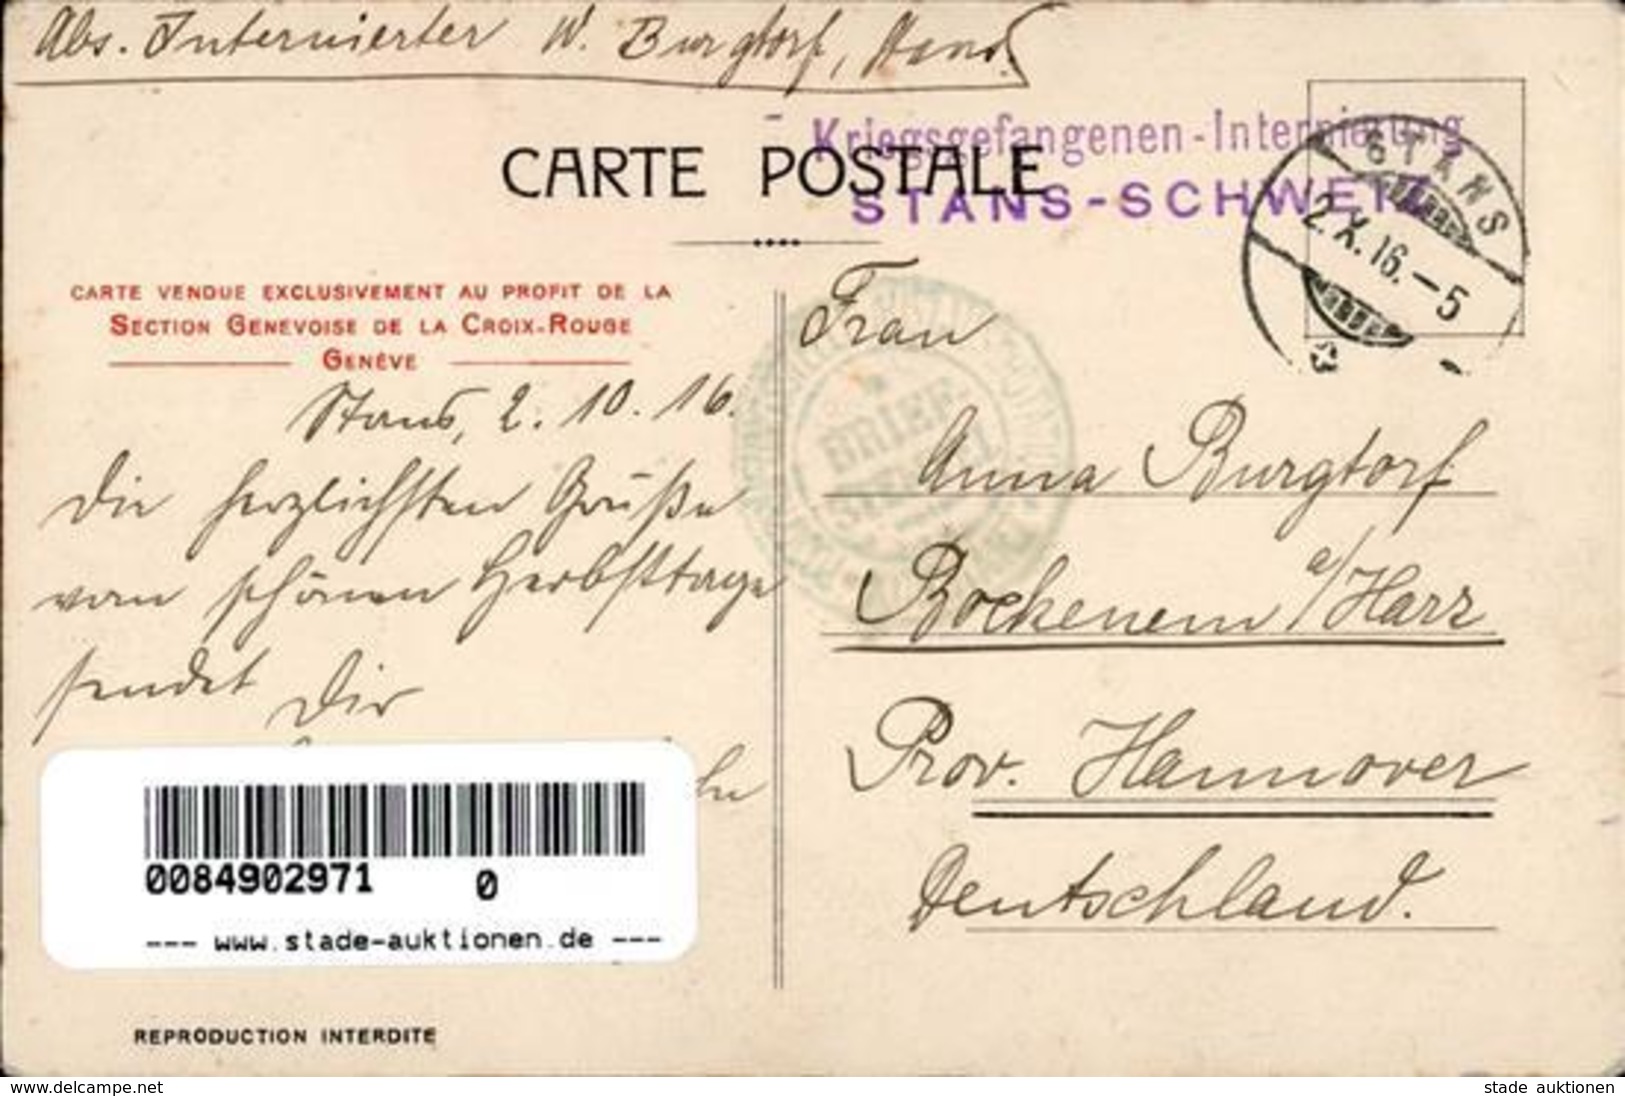 Abs. Internierter W. Burgtorf, Stans.
Kriegsgefangenen-Internierung
STANS-SCHWEIZ
CARTE POSTALE
STANS
2.X.16.-5
CARTE VENDUE EXCLUSIVEMENT AU PROFIT DE LA
SECTION GENEVOISE DE LA CROIX-ROUGE
GENÈVE
BRIEF
Stans, 2. 10. 16.
Die herzlichsten Grüße
vom schönen Herbsttage
sendet Dir
Frau
Anna Burgtorf
Bockenem a/Harz
Prov. Hannover
Deutschland.
0084902971 0
--- www.stade-auktionen.de ---
REPRODUCTION INTERDITE
www.delcampe.net
stade auktionen